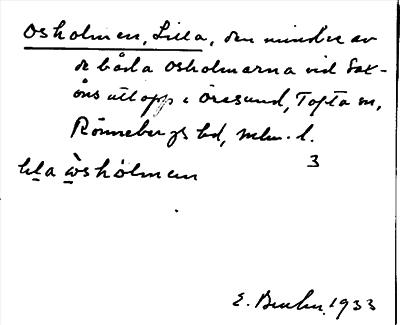 Osholmen, Lilla, den mindre av
de båda Osholmarna vid Sax-
åns utlopp i Öresund, Tofta sn,
Rönnebergs hd, Mlm. l.
3
lila òshòlmen
E. 1933